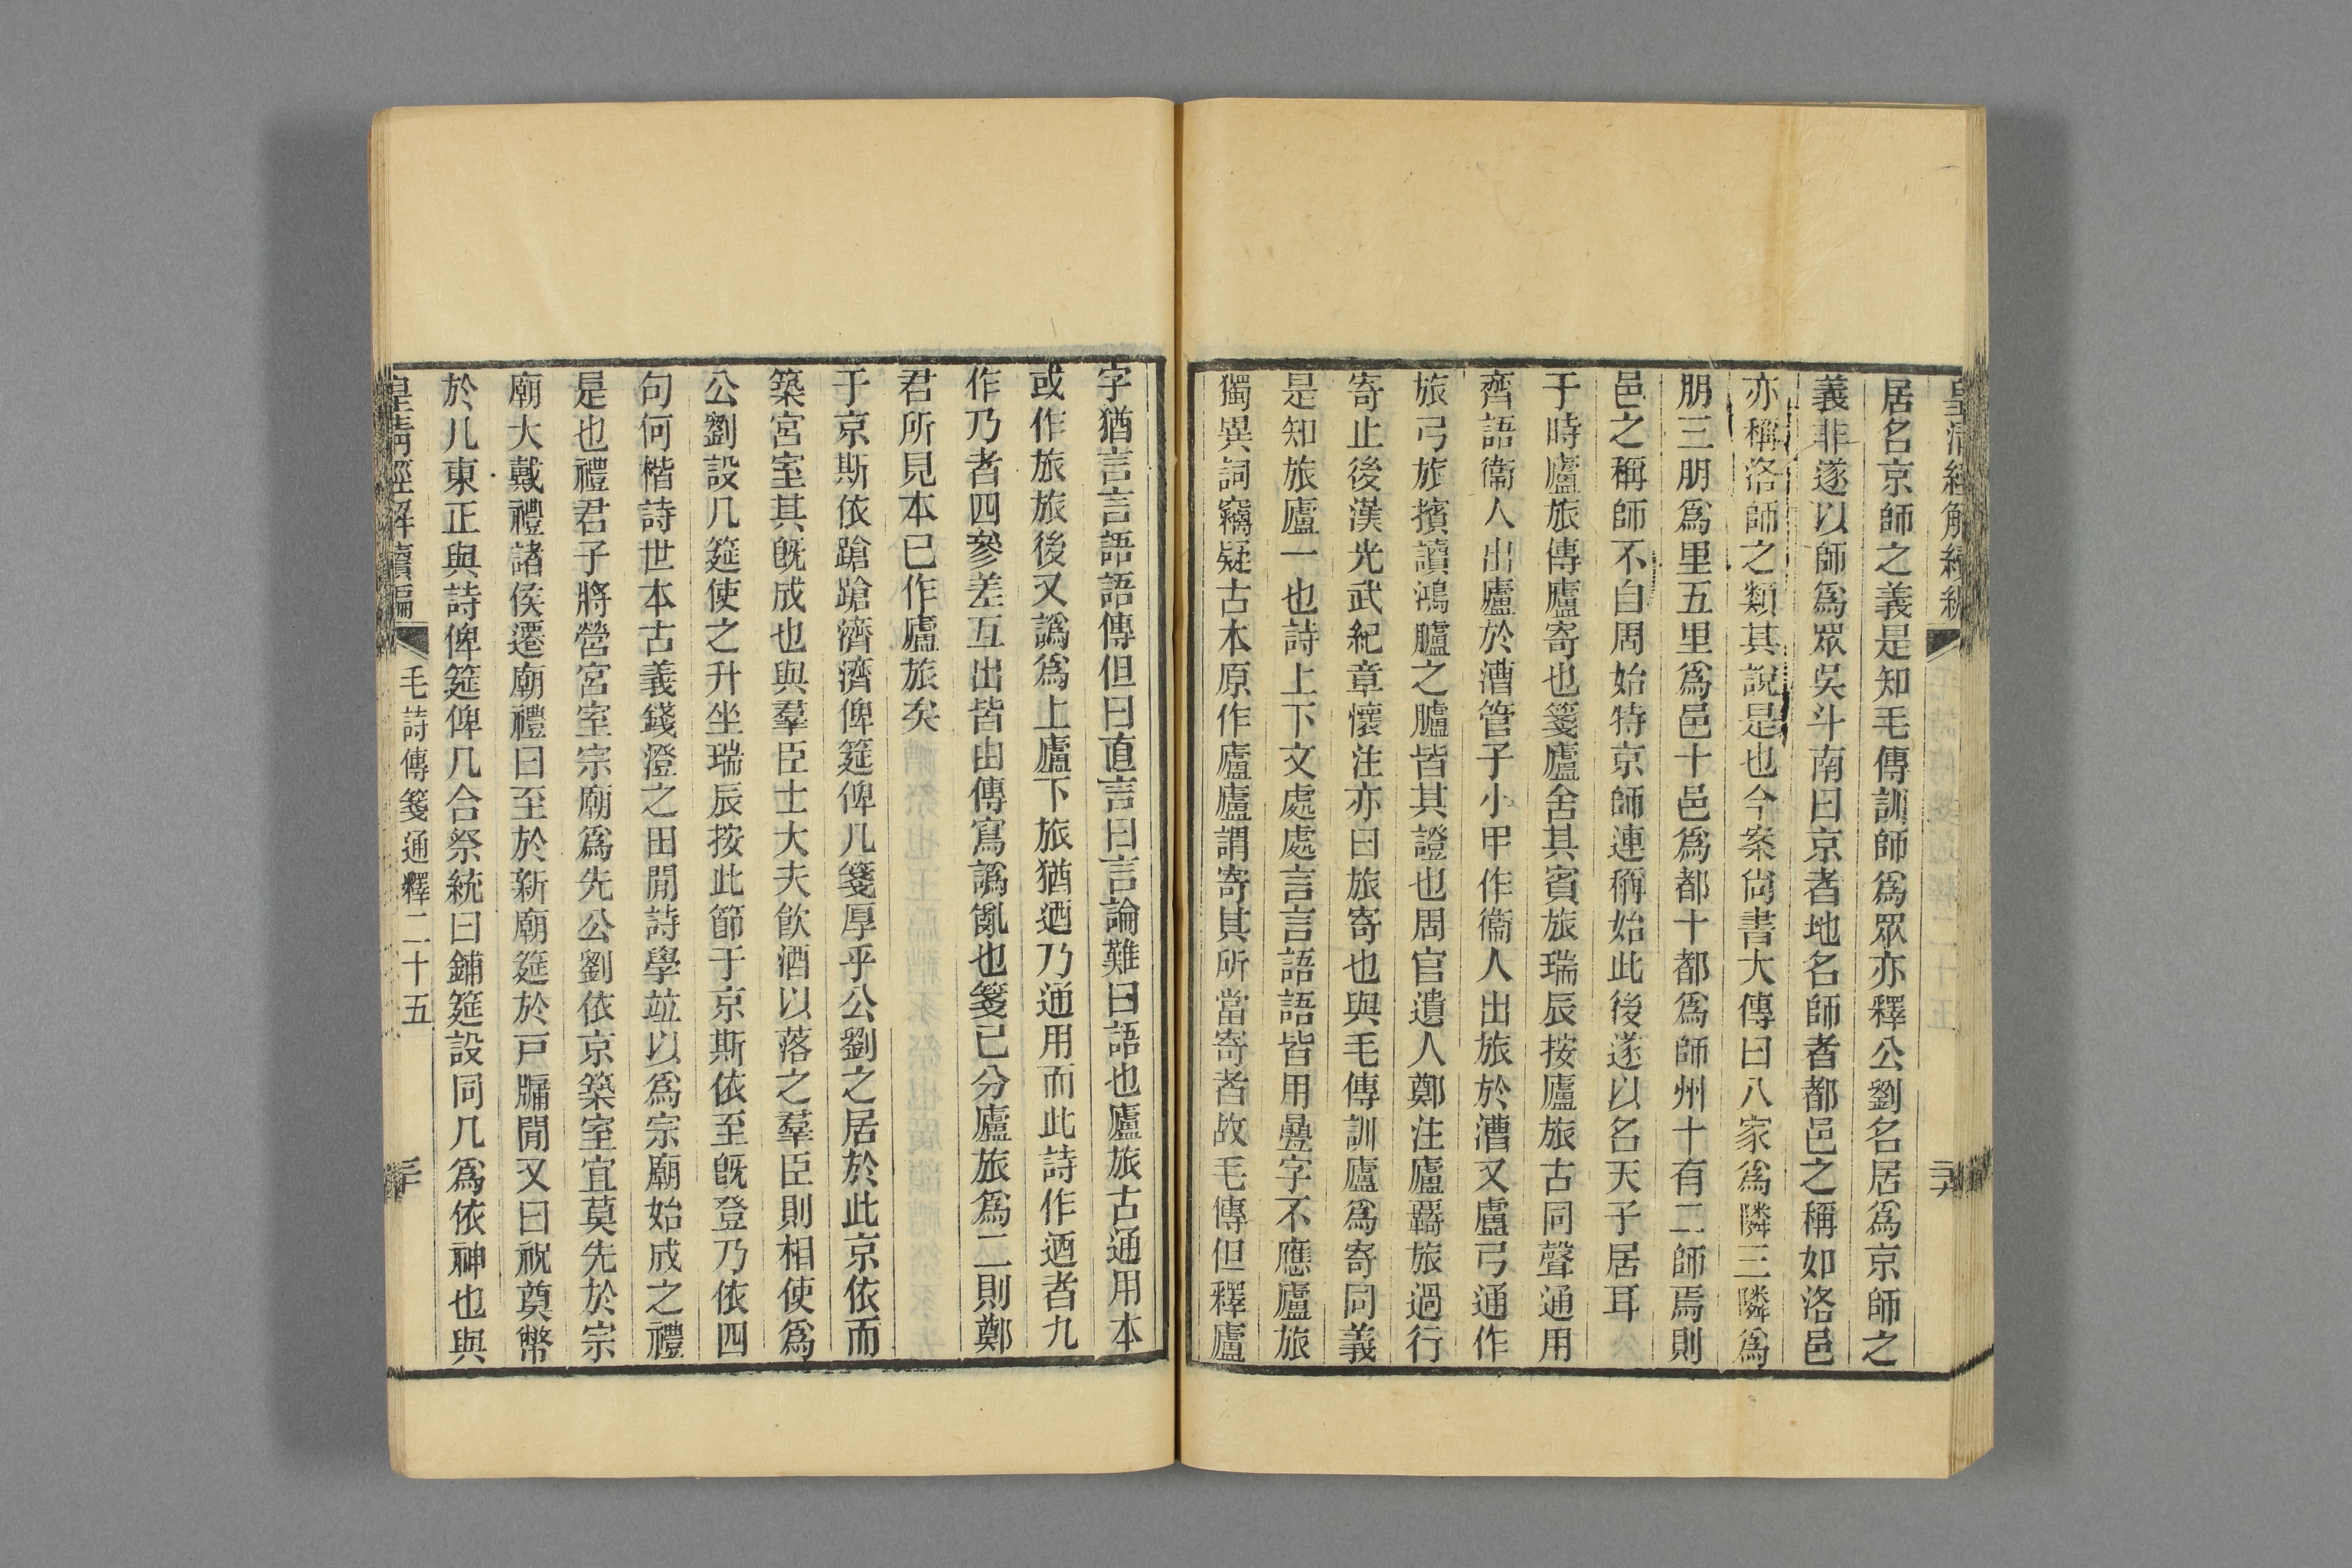 居名京師之義是知毛傳訓師爲眾亦釋公劉名居爲京師之
義非遂以師爲眾吳斗南曰京者地名師者都邑之稱如洛邑
亦稱洛師之類其說是也今案尙書大傳曰八家爲隣三隣爲
朋三朋爲里五里爲邑十邑爲都十都爲師州十有二師焉則
邑之稱師不自周始特京師連稱始此後遂以名天子居耳
于時廬旅傳廬寄也箋廬舍其賓旅瑞辰按廬旅古同聲通用
齊語衞人出廬於漕管子小甲作衞人出旅於漕又盧弓通作
旅弓旅擯讀鴻臚之臚皆其證也周官遺人鄭注廬羇旅過行
寄止後漢光武紀章懷注亦曰旅寄也與毛傳訓廬爲寄同義
是知旅廬一也詩上下文處處言言語語皆用疊字不應廬旅
獨異詞竊疑古本原作廬廬謂寄其所當寄者故毛傳但釋廬
字猶言言語語傳但曰直言曰言論難曰語也廬旅古通用本
或作旅旅後又譌爲上廬下旅猶迺乃通用而此詩作迺者九
作乃者四參差互出皆由傳寫譌亂也箋已分廬旅爲二則鄭
君所見本已作廬旅矣
于京斯依蹌蹌濟濟俾筵俾几箋厚乎公劉之居於此京依而
築宮室其旣成也與羣臣士大夫飮酒以落之羣臣則相使爲
公劉設几筵使之升坐瑞辰按此節于京斯依至旣登乃依四
句何楷詩世本古義錢澄之田閒詩學竝以爲宗廟始成之禮
是也禮君子將營宮室宗廟爲先公劉依京築室宜莫先於宗
廟大戴禮諸侯遷廟禮曰至於新廟筵於戸牖閒又曰祝奠幣
於几東正與詩俾筵俾几合祭統曰鋪筵設同几爲依神也與
皇淸經解續編
毛詩傳箋通釋二十五